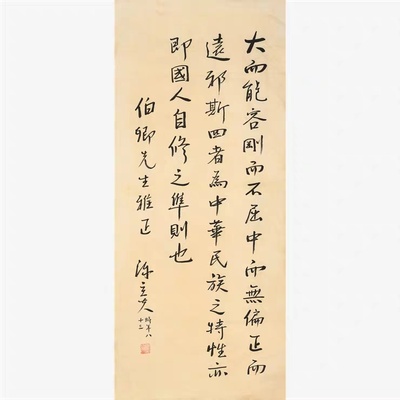 大而能容剛而不屈中而無偏正而
遠邪斯四者為中華民族之特性亦
即國人自修之準則也
伯卿先生雅正
陳立夫 時年八
十三